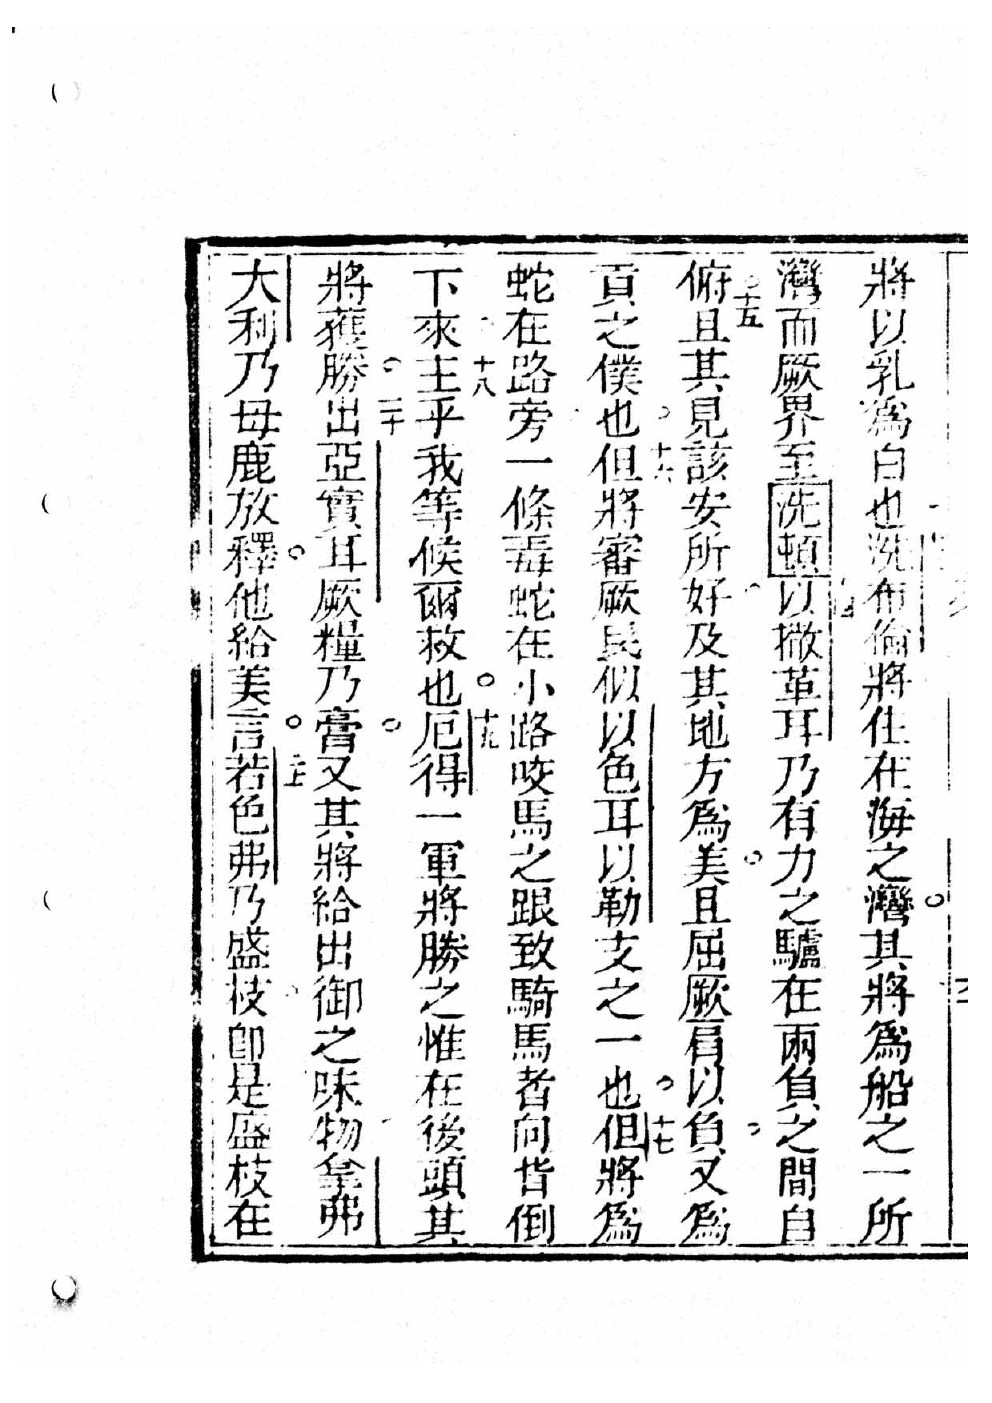 將以乳為白也洗布倫將住在海之灣其將為船之一所
灣而厥界至洗頓以撒革耳乃有力之驢在兩負之間自
俯且其見該安所好及其地方為美且屈厥肩以負又為
十五
貢之僕也但將審厥民似以色耳以勒支之一也但將為
十六
十七
蛇在路旁一條毒蛇在小路咬馬之跟致騎馬者向背倒
下來主乎我等候爾救也厄得一軍將勝之惟在後頭其
十八
十九
將獲勝出亞實耳厥糧乃膏又其將給出御之味物拿弗
二十
大利乃母鹿放釋他給美言若色弗乃盛枝卽是盛枝在